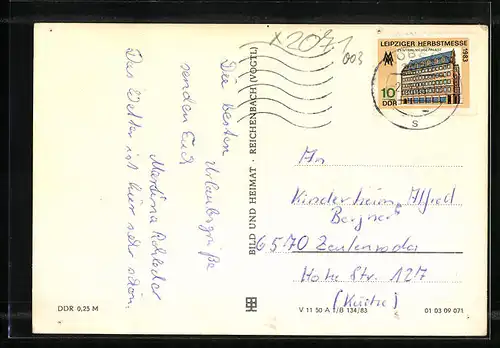 x2071
003
LEIPZIGER HERBSTMESSE
1983
10
DDR
s
Die besten Urlaubsgrüße
senden Euch
Martina
Das Wetter ist hier sehr schön.
BILD UND HEIMAT · REICHENBACH (VOGTL)
An
Kinderheim Alfred
6570 Zeulenroda
Hohe Str. 127
(Küche)
DDR 0,25 M
V 11 50 A 1/B 134/83
01 03 09 071